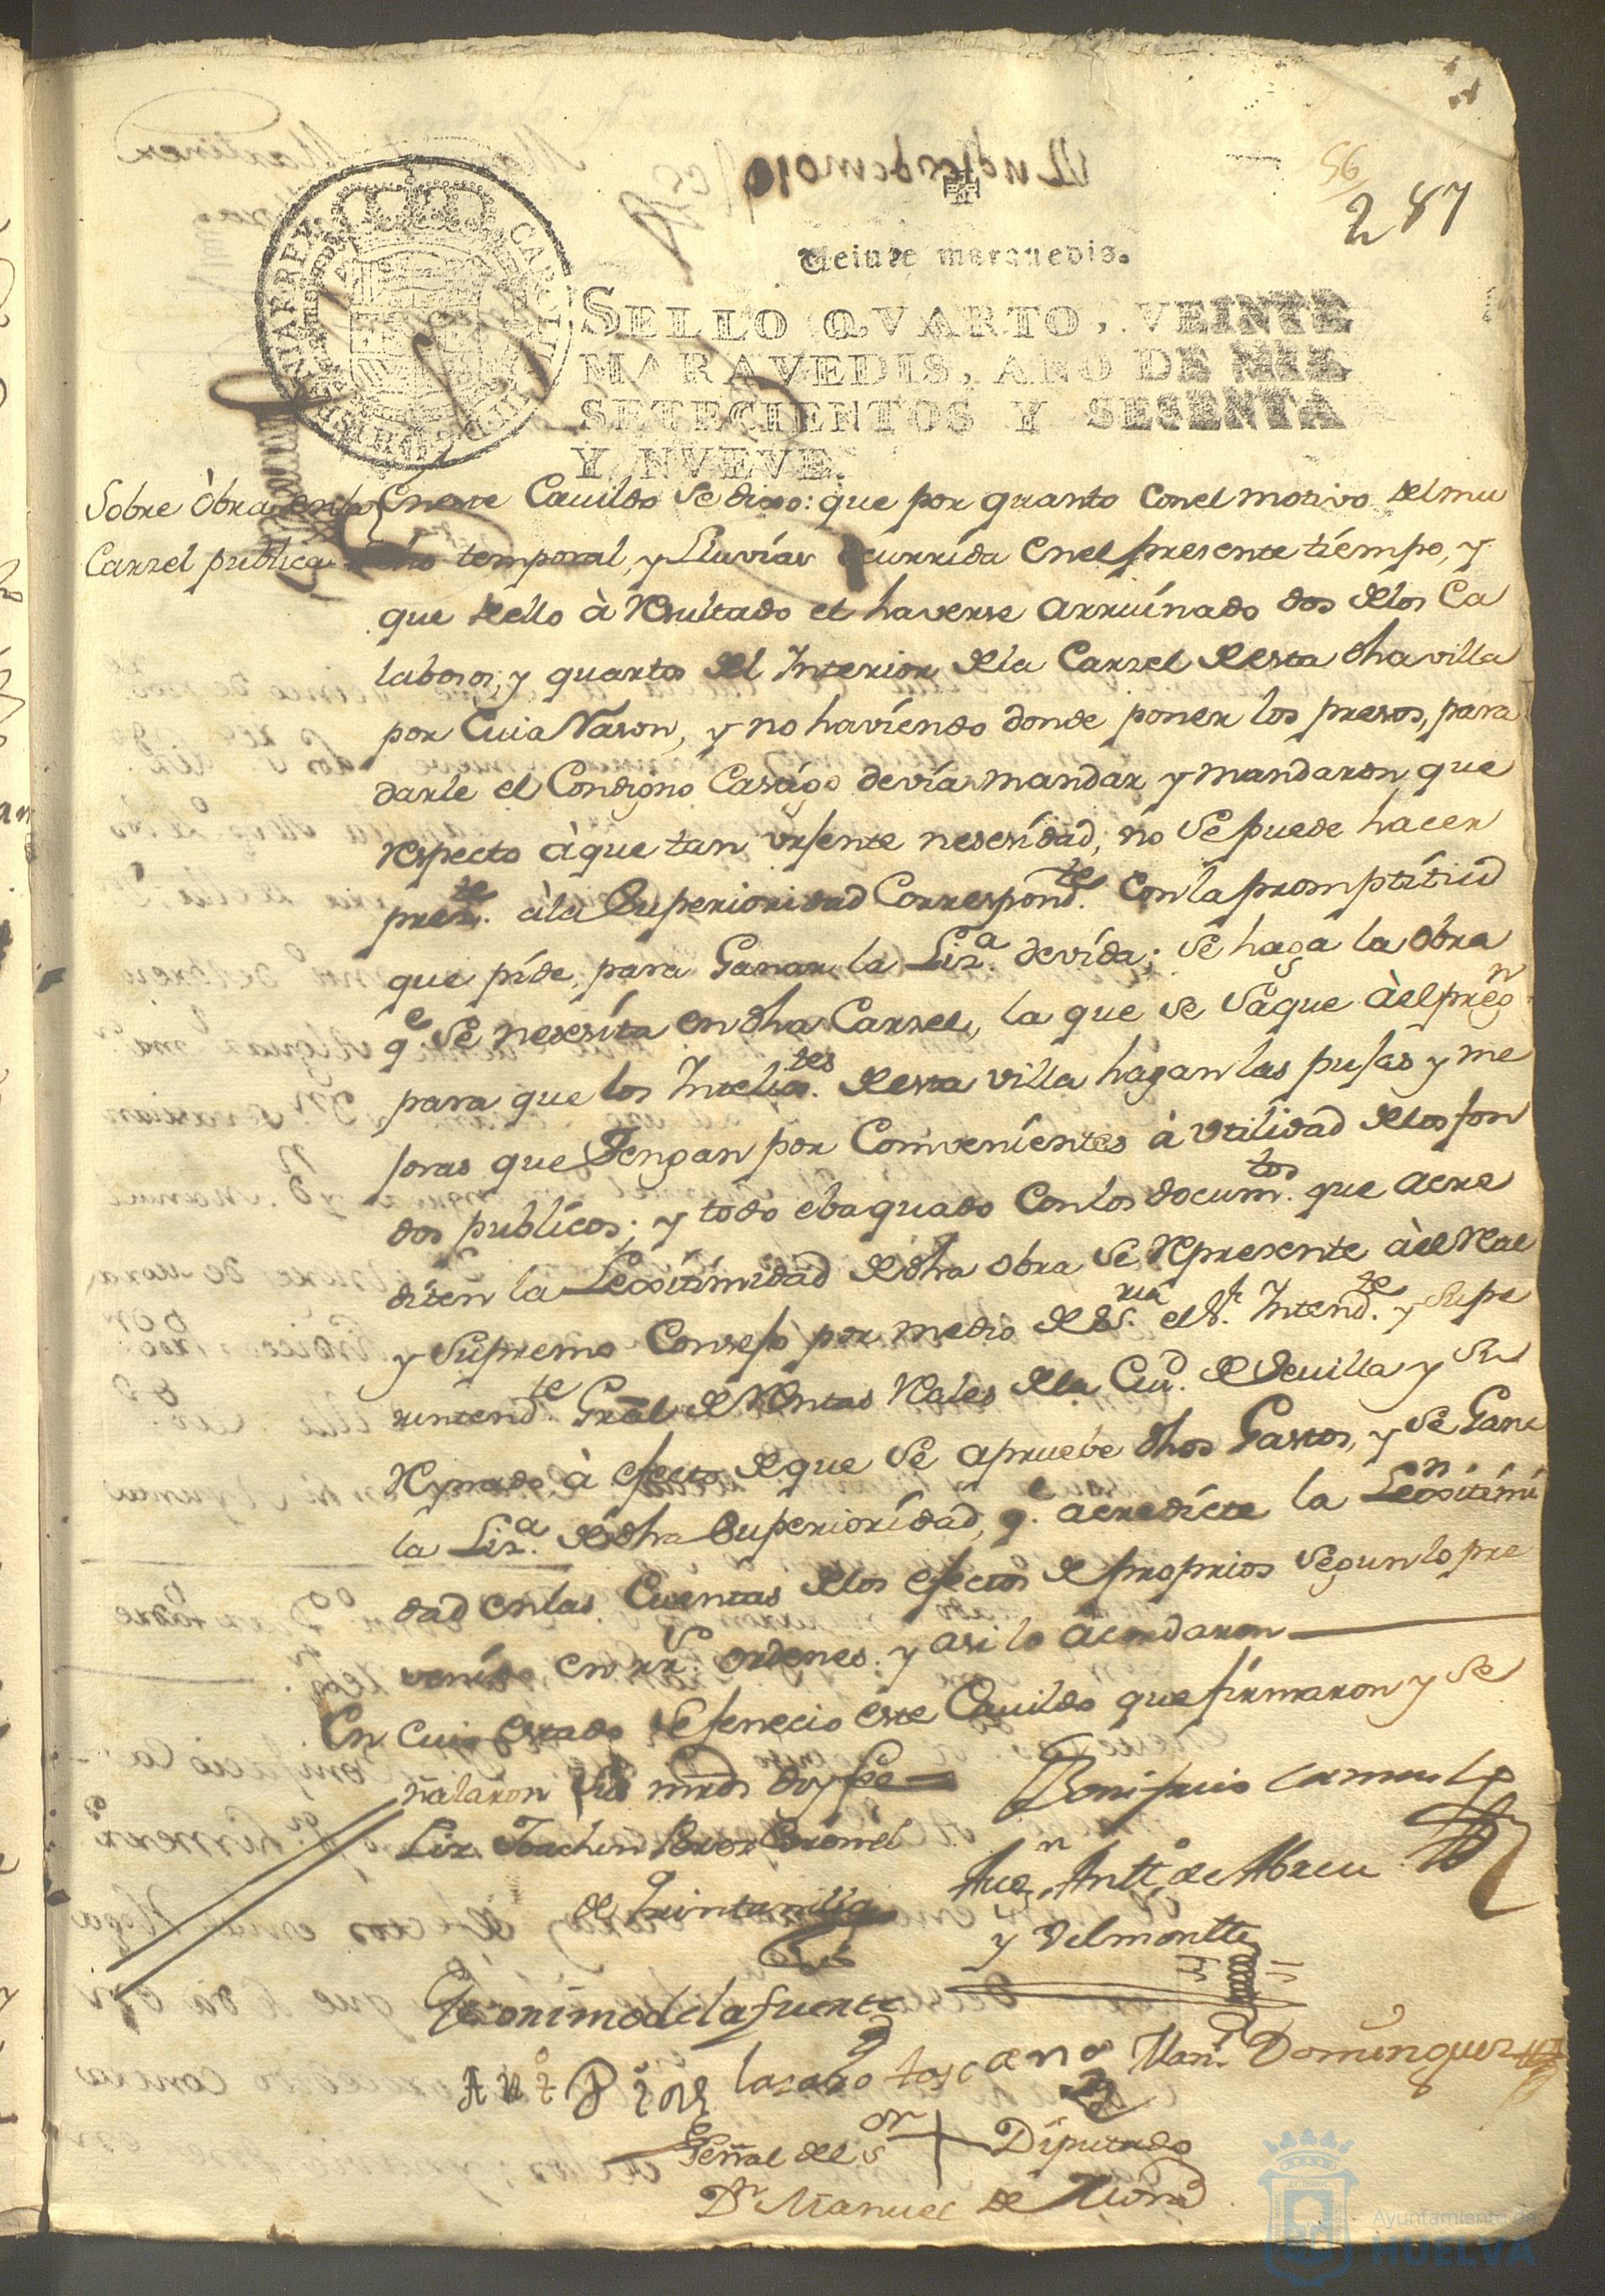 56
287
Veinte maravedis.
SELLO QVARTO, VEINTE
MARAVEDIS, AÑO DE MIL
SETECIENTOS Y SESENTA
Y NVEVE.
Sobre òbra en la
Carzel publica
En este Cauildo Se dixo: que por quanto Con el motivo del mu
cho temporal, y Lluvías ocurrída en el presente tíempo, y
que de ello à Resultado el haverse arruínado dos de los Ca
labosos, y quartos del Interior de la Carzel de esta dha villa
por Cuia Rason, y no havíendo donde poner los presos, para
darle el Condigno Castígo devían mandar y mandaron que
respecto à que tan vrjente nesesídad, no Se puede hacer
preste. à la Superioridad Correspondte. Con la promptítud
que píde, para Ganar la Liza. devída; Se haga la obra
qe. Se nesesíta en dha Carzel, la que Se Saque à el pregn.
para que los Intelitxtes. de esta villa hagan las pujas y me
joras que Tengan por Comvenientes à vtilidad de los fon
dos publícos; y todo ebaquado Con los documtos. que acre
díten la Legítimidad de dha obra Se Represente à el Real
y Supremo Consejo por medio de S. ria el Sr. Intendte. y Supe
rintendte. Gral de Rentas Reales de la Ciud. de Sevilla y Su
Reynado, à efecto de que Se apruebe dhos Gastos, y Se Gane
la Liza. de dha Superiorídad, qe. acredícte la Legitími
dad en las Cuentas de los efectos de proprios Segun lo pre
venído en rrs. ordenes. y asi lo acordaron
En Cuio estado se feneció este Cauildo que fírmaron y Se
ñalaron Sus mrds doy fe
Bonifacio
Liz. Joachin Coronel
de Quintanilla
Antto. de Abreu
y Delmontte
Geronimo de la fuente
Lazaro toscano
Manl. Dominguez
Señal del Sor + Diputado
Dn Manuel de Mora
Ayuntamiento de
HUELVA